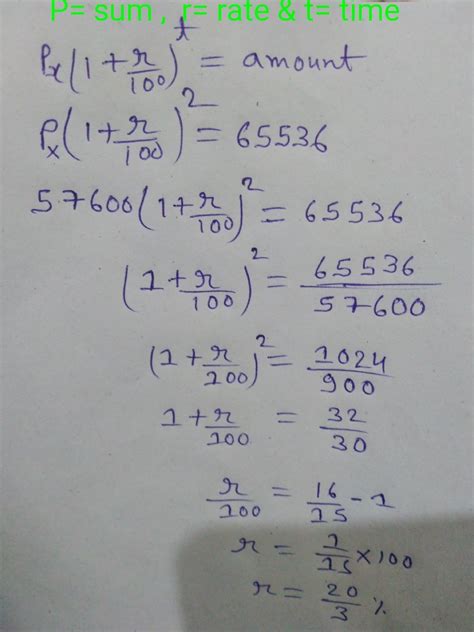 P= sum , r= rate & t= time
Px(1+r/100)^t = amount
Px(1+r/100)^2 = 65536
57600(1+r/100)^2 = 65536
(1+r/100)^2 = 65536/57600
(1+r/100)^2 = 1024/900
1+r/100 = 32/30
r/100 = 16/15 - 1
r = 1/15 × 100
r = 20/3 %